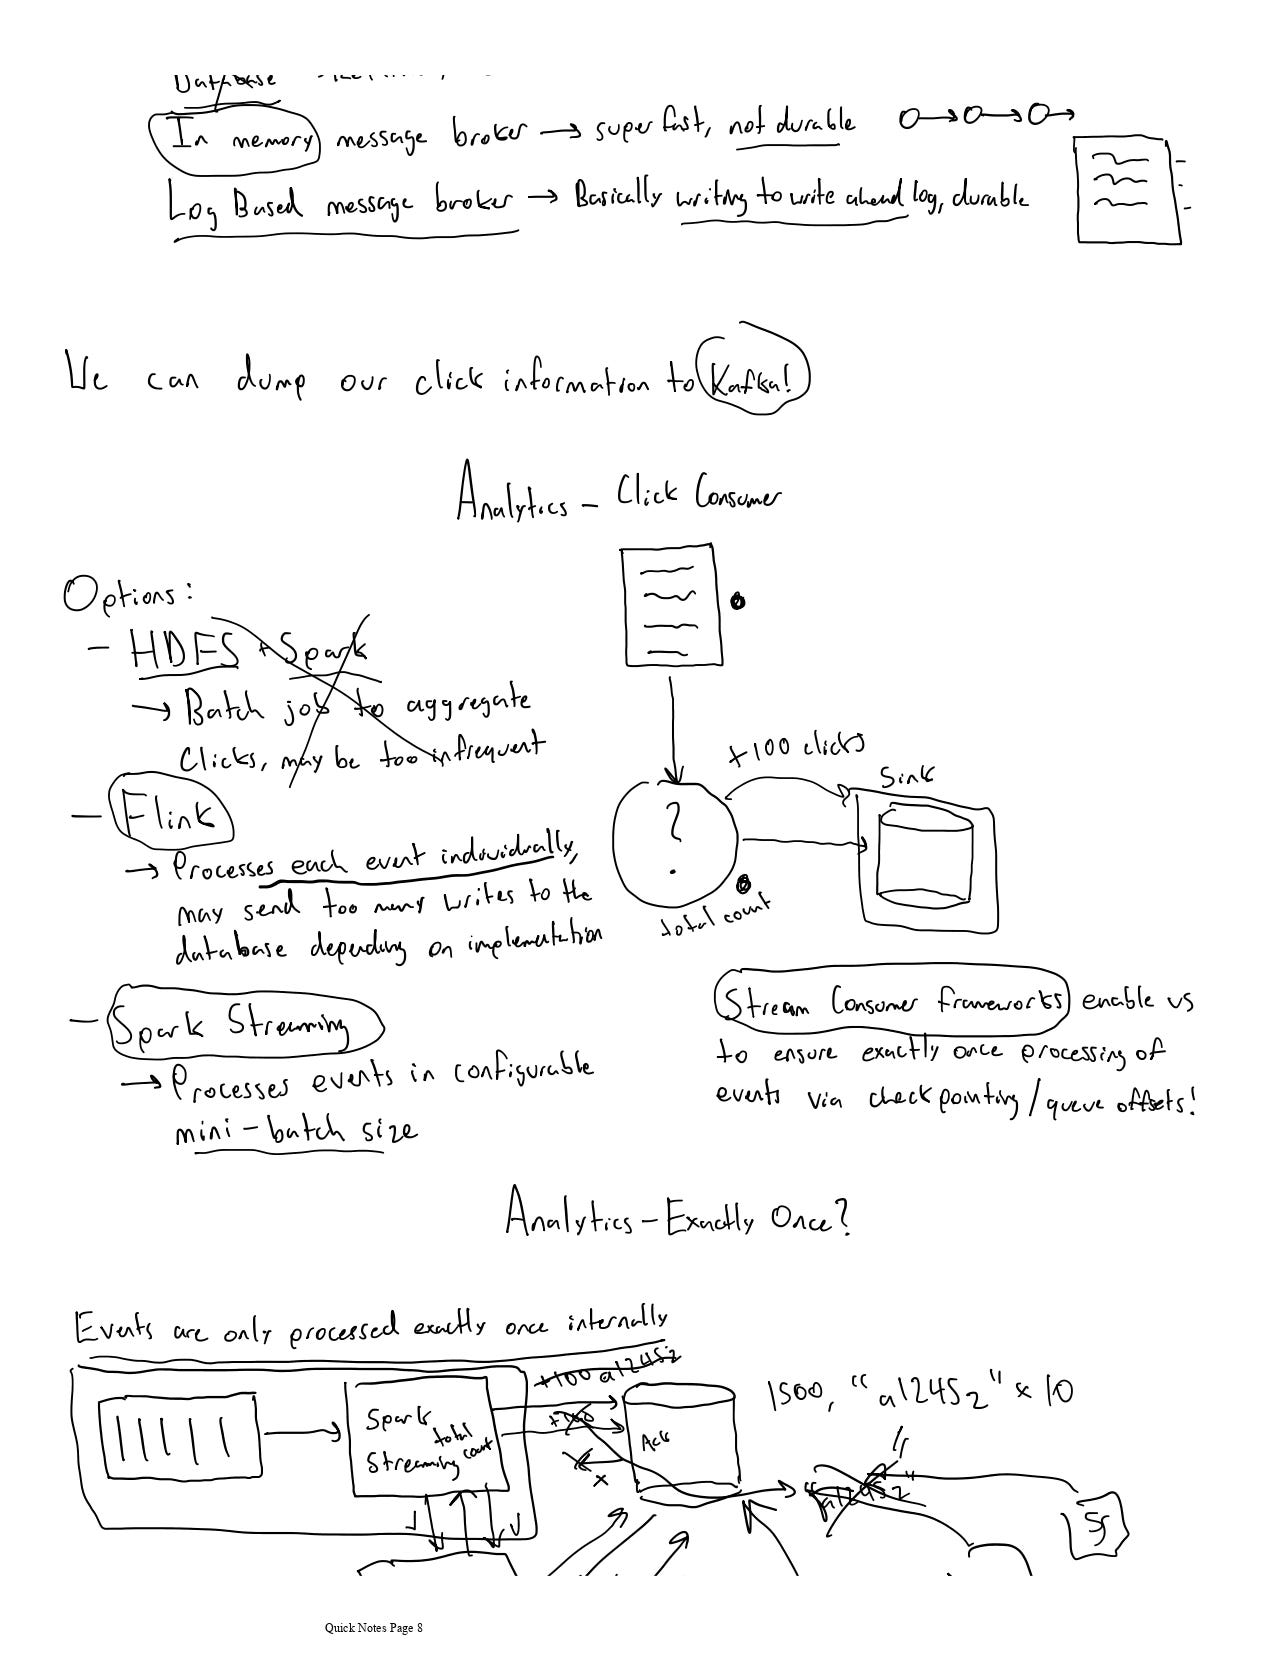 Database
In memory message broker → super fast, not durable
Log Based message broker → Basically writing to write ahead log, durable
We can dump our click information to Kafka!
Analytics - Click Consumer
Options:
- HDFS + Spark
→ Batch job to aggregate
Clicks, may be too infrequent
- Flink
→ Processes each event individually,
may send too many writes to the
database depending on implementation
- Spark Streaming
→ Processes events in configurable
mini-batch size
?
+100 clicks
Sink
total count
Stream Consumer frameworks enable us
to ensure exactly once processing of
events via checkpointing/queue offsets!
Analytics - Exactly Once?
Events are only processed exactly once internally
Spark
Streaming
total
count
+100 a1245z
+100
x
Ack
1500, "a1245z" x 10
"a1245z"
SS
Quick Notes Page 8